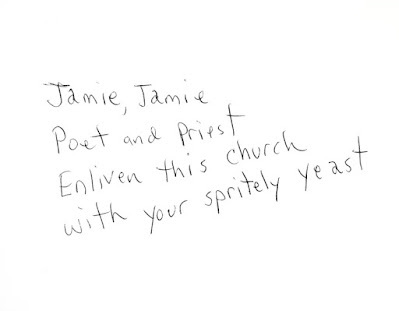 Jamie, Jamie
Poet and Priest
Enliven this church
with your spritely yeast